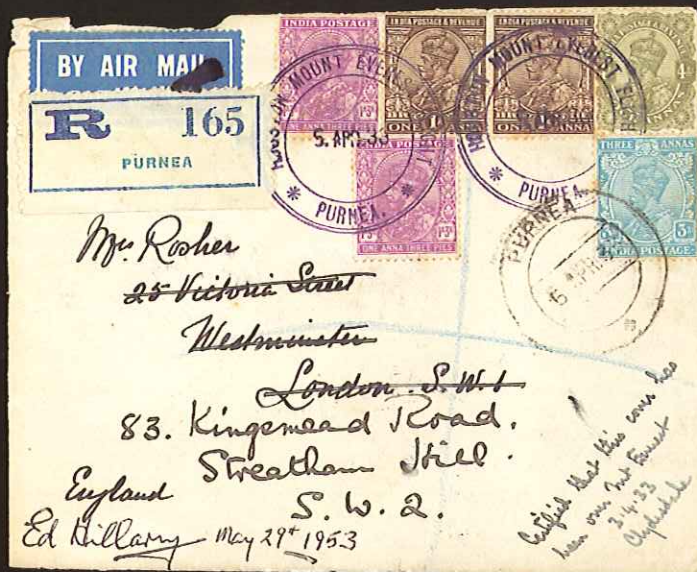 BY AIR MAIL
R 165
PURNEA
INDIA POSTAGE
1A3P
ONE ANNA THREE PIES
INDIA POSTAGE & REVENUE
ONE 1A ANNA
INDIA POSTAGE & REVENUE
ONE ANNA
4A
ANNAS
1A3P
ONE ANNA THREE PIES
THREE ANNAS
3A
INDIA POSTAGE
HOUSTON MOUNT EVEREST FLIGHT
5. APR. 33
* PURNEA. *
HOUSTON MOUNT EVEREST FLIGHT
5. APR. 33
* PURNEA.
PURNEA
6 APR
Mrs Rosher
25 Victoria Street
Westminster
London. S.W.1
83. Kingsmead Road.
Streatham Hill.
England
S.W.2.
Ed Hillary May 29th 1953
Certified that this cover has
been over Mt Everest
3.4.33
Clydesdale